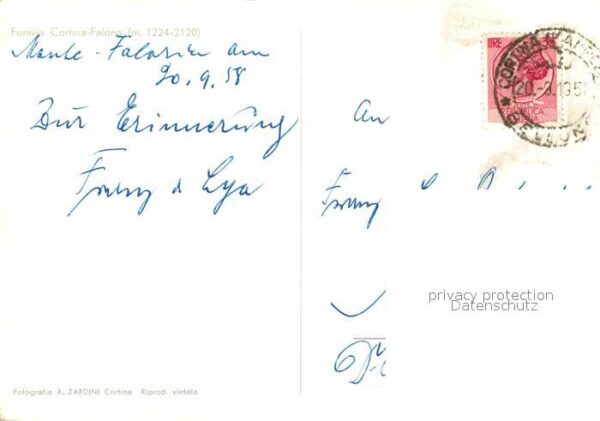 Funivia Cortina-Faloria (m. 1224-2120)
Monte - Falorien am
20.9.58
Zur Erinnerung
Franz & Lya
LIRE
An
Franz
privacy protection
Datenschutz
Fotografia A. ZARDINI Cortina Riprod. vietata